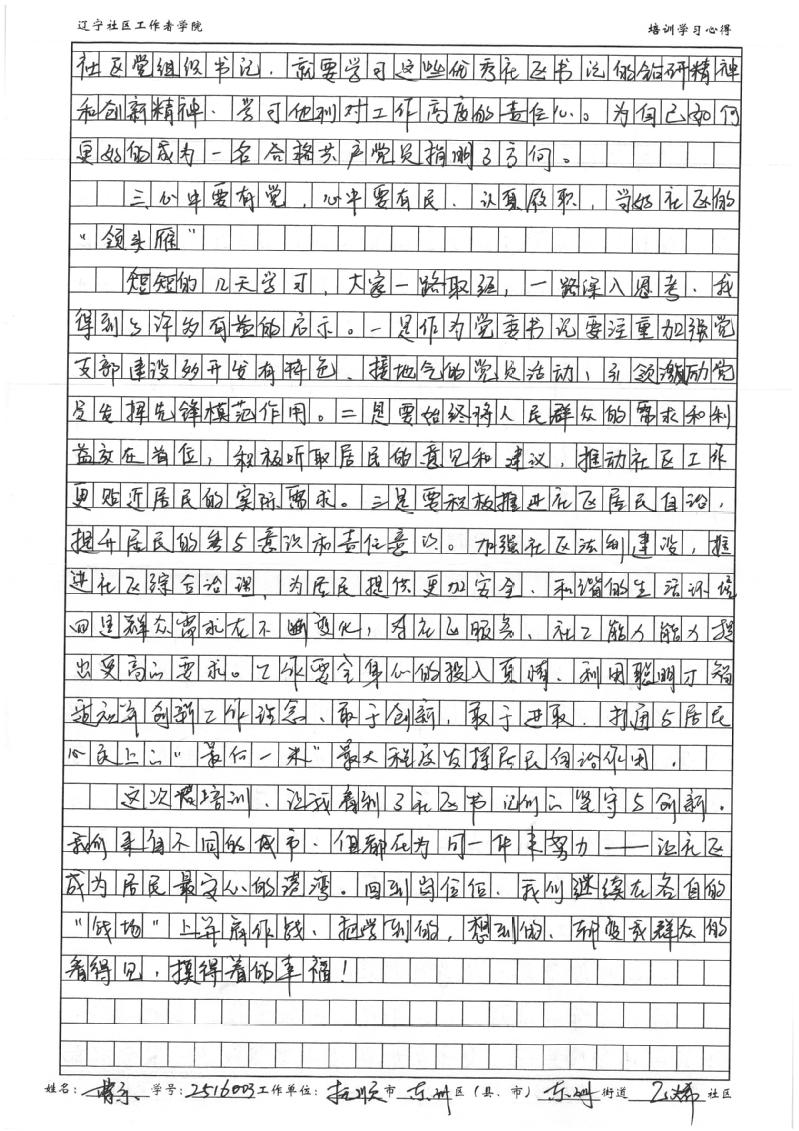 辽宁社区工作者学院 培训学习心得
社区党组织书记，就要学习这些优秀社区书记的钻研精神
和创新精神、学习他们对工作高度的责任心。为自己如何
更好的成为一名合格共产党员指明了方向。
三、心中要有党，心中要有民、认真履职，当好社区的
“领头雁”
短短的几天学习，大家一路取经，一路深入思考、我
得到了许多有益的启示。一是作为党委书记要注重加强党
支部建设，开发有特色、接地气的党员活动，引领激励党
员发挥先锋模范作用。二是要始终将人民群众的需求和利
益放在首位，积极听取居民的意见和建议，推动社区工作
更贴近居民的实际需求。三是要积极推进社区居民自治，
提升居民的参与意识和责任意识。加强社区法制建设，推
进社区综合治理，为居民提供更加安全、和谐的生活环境
四是群众需求在不断变化，对社区服务、社工能力能力提
出更高的要求。工作要全身心的投入真情、利用聪明才智
创新工作理念、敢于创新，敢于进取，打通与居民
心灵上的“最后一米”最大程度发挥居民自治作用。
这次培训、让我看到了社区书记们的坚守与创新。
我们来自不同的城市、但都在为同一件事努力——让社区
成为居民最安心的港湾。回到岗位后、我们继续在各自的
“战场”上并肩作战、把学到的，想到的、都变成群众的
看得见，摸得着的幸福！
姓名： 学号：2516003 工作单位：抚顺市 东洲区（县、市） 东洲街道 社区